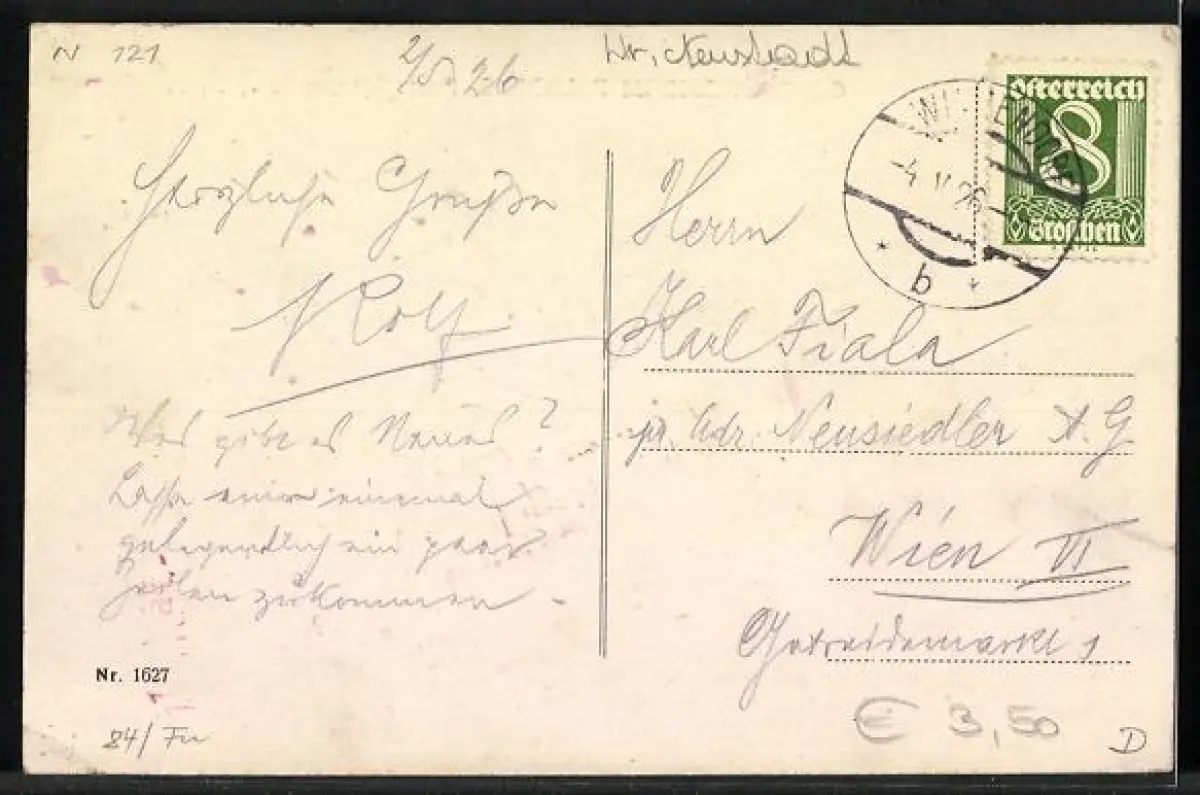 N 121
2/5. 26
Wr. Neustadt
Österreich
8
Groschen
4 V 26
b
Herzliche Grüße
Rolf
Was gibt es Neues?
Lasse mir einmal
gelegentlich ein paar
Zeilen zukommen -
Herrn
Karl Fiala
pr. Adr. Neusiedler A. G.
Wien VI
Getreidemarkt 1
Nr. 1627
84/Fu
€ 3,50
D